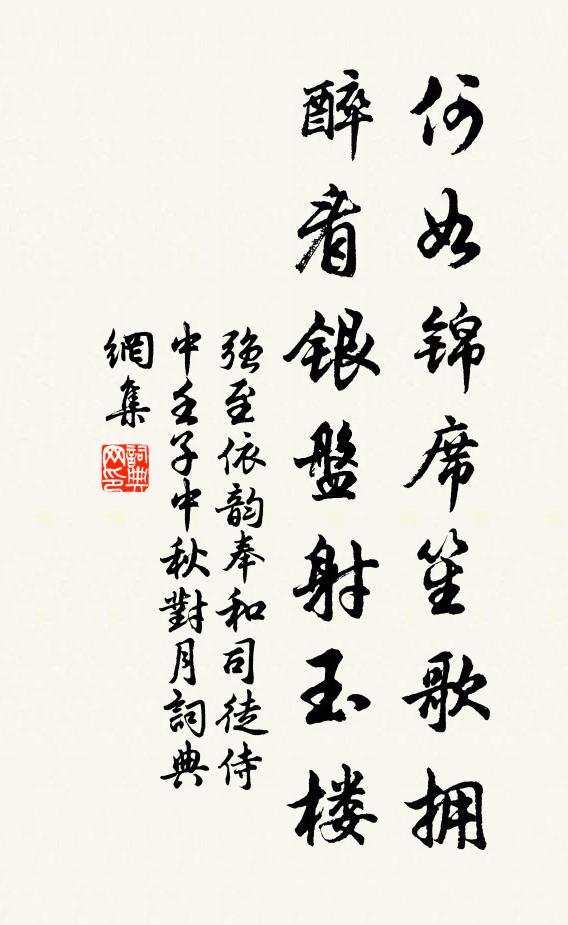 何如锦席笙歌拥
醉看银盤射玉楼
强至依韵奉和司徒侍
中壬子中秋對月詞典
網集
詞典网印